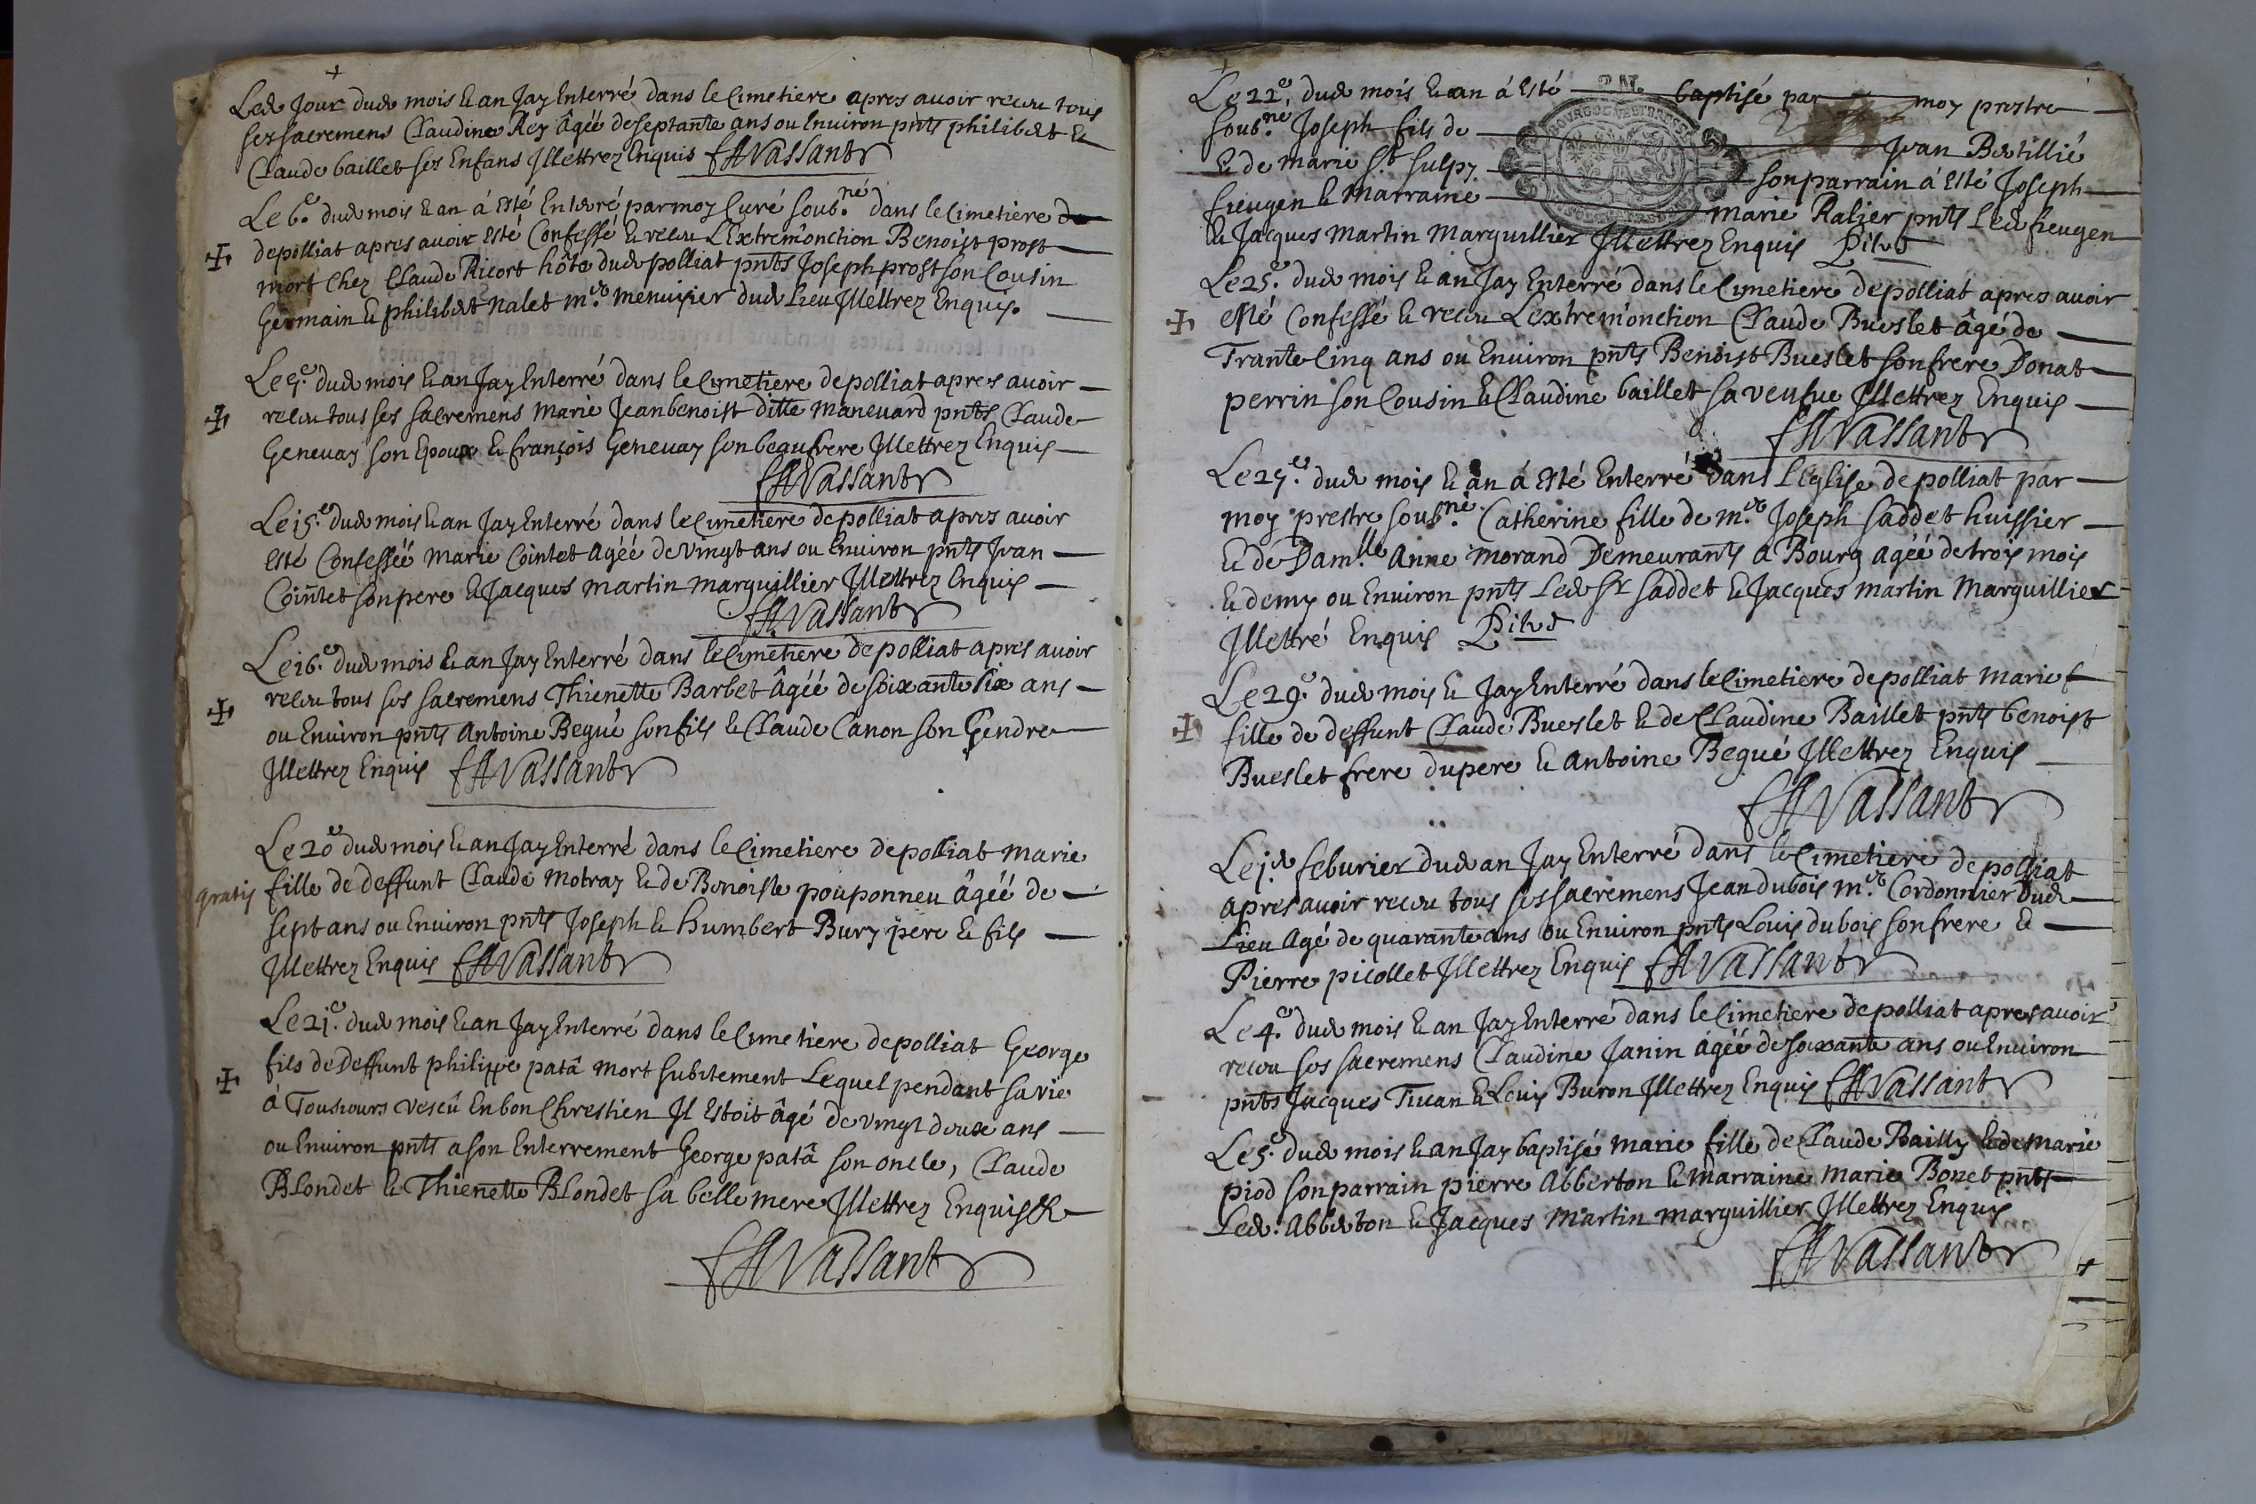 Led. Jour dud. mois & an Jay Enterré dans le Cimetiere apres avoir recu tous
ses sacremens Claudine Rey âgéé de septante ans ou Environ pnts philibert &
Claude baillet ses Enfans Illettrez Enquis Vassant
Le 6.e dud. mois & an á Esté Enterré par moy Curé soub.né dans le Cimetiere
de polliat apres avoir Esté Confessé & recu L'Extrem'onction Benoist prost
mort Chez Claude Ricort hôte dud. polliat pnts Joseph prost son Cousin
Germain & philibert nalet m.e menuisier dud. Lieu Illettrez Enquis.
Le 9.e dud. mois & an Jay Enterré dans le Cimetiere de polliat apres avoir
recu tous ses sacremens marie Jeanbenoist ditte manevard pnts Claude
Genevay son Epoux & françois Genevay son beaufrere Illettrez Enquis
Vassant
Le 15.e dud. mois & an Jay Enterré dans le Cimetiere de polliat apres avoir
esté Confesséé marie Cointet agéé de vingt ans ou Environ pnts Jvan
Cointet son pere & Jacques martin marguillier Illettrez Enquis
Vassant
Le 16.e dud. mois & an Jay Enterré dans le Cimetiere de polliat apres avoir
recu tous ses sacremens Thienette Barbet âgéé de soixante six ans
ou Environ pnts Antoine Begué son fils & Claude Canon son Gendre
Illettrez Enquis Vassant
Le 20.e dud. mois & an Jay Enterré dans le Cimetiere de polliat marie
gratis fille de deffunt Claude motray & de Benoiste pouponneu âgéé de
sept ans ou Environ pnts Joseph & humbert Bury pere & fils
Illettrez Enquis Vassant
Le 21.e dud. mois & an Jay Enterré dans le Cimetiere de polliat George
fils de Deffunt philippe patâ mort subitement Lequel pendant sa vie
á Tousiours vescû En bon Chrestien Il Estoit âgé de vingt deux ans
ou Environ pnts a son Enterrement George patâ son oncle, Claude
Blondet & Thienette Blondet sa belle mere Illettrez Enquis
Vassant
Le 22.e dud. mois & an á Esté baptisé par moy prestre
soub.né Joseph fils de Jvan Bertillié
& de marie st. sulpy son parrain á Esté Joseph
fieugen & Marraine marie Ralier pnts Led. fieugen
& Jacques martin Marguillier Illettrez Enquis
Le 25.e dud. mois & an Jay Enterré dans le Cimetiere de polliat apres avoir
esté Confessé & recu L'extrem'onction Claude Bueslet âgé de
Trante Cinq ans ou Environ pnts Benoist Bueslet son frere Donat
perrin son Cousin & Claudine baillet sa veufve Illettrez Enquis
Vassant
Le 27.e dud. mois & an á Esté Enterré dans L'Eglise de polliat par
moy prestre soub.né Catherine fille de m.e Joseph saddet huissier
& de Dam.lle Anne morand Demeurants a Bourg agéé de trois mois
& demy ou Environ pnts Led. sr saddet & Jacques martin Marguillier
Illettré Enquis
Le 29.e dud. mois & Jay Enterré dans le Cimetiere de polliat marie
fille de deffunt Claude Bueslet & de Claudine Baillet pnts benoist
Bueslet frere du pere & antoine Begué Illettrez Enquis
Vassant
Le 1.er feburier dud. an Jay Enterré dans le Cimetiere de polliat
apres avoir recu tous ses sacremens Jean dubois m.e Cordonnier Dud.
Lieu Agé de quarante ans ou Environ pnts Louis dubois son frere &
Pierre picollet Illettrez Enquis Vassant
Le 4.e dud. mois & an Jay Enterré dans le Cimetiere de polliat apres avoir
recu ses sacremens Claudine Janin agéé de soixante ans ou Environ
pnts Jacques Tivan & Louis Buron Illettrez Enquis Vassant
Le 5.e dud. mois & an Jay baptisé marie fille de Claude Bailly & de marie
piod son parrain pierre Abberton & marraine marie Bonet pnts
Led. Abberton & Jacques Martin marguillier Illettrez Enquis
Vassant